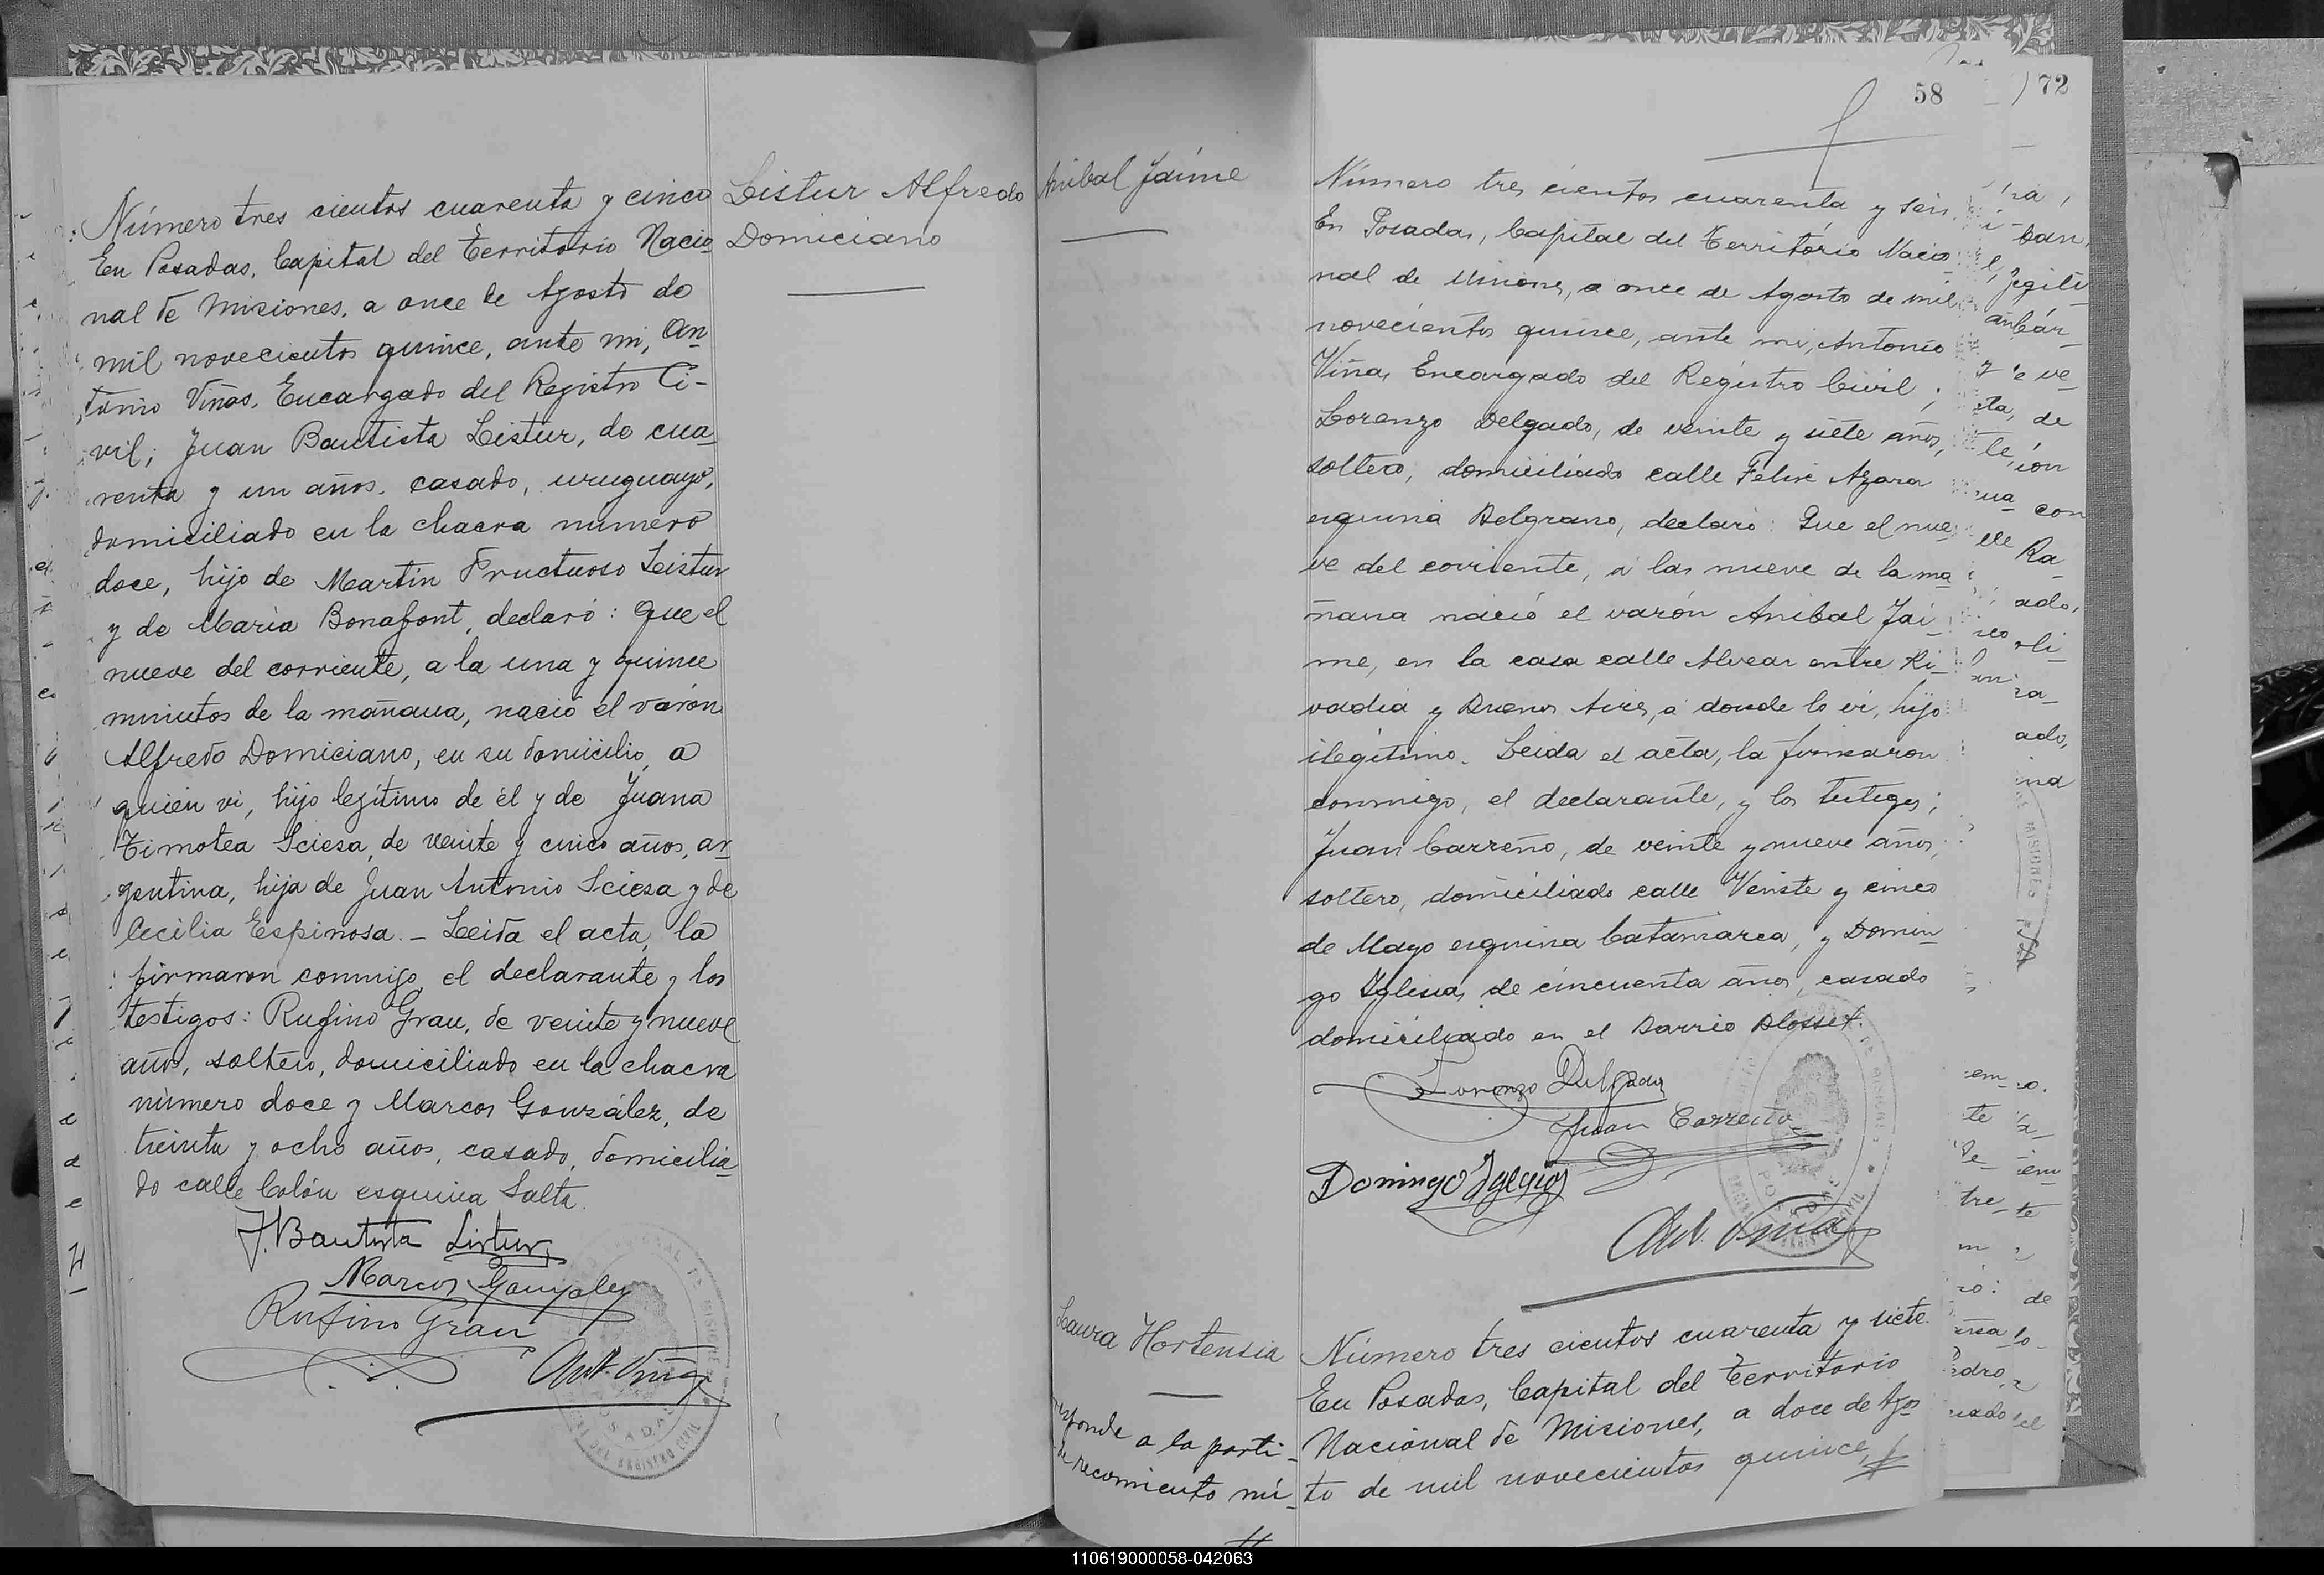 Número tres cientos cuarenta y cinco
En Posadas, Capital del Territorio Nacio
nal de Misiones, a once de Agosto de
mil novecientos quince, ante mi, An
tonio Viñas, Encargado del Registro Ci-
vil; Juan Bautista Listur, de cua
renta y un años, casado, uruguayo,
domiciliado en la chacra número
doce, hijo de Martin Fructuoso Listur
y de María Bonafont, declaró: Que el
nueve del corriente, a la una y quince
minutos de la mañana, nació el varón
Alfredo Domiciano, en su domicilio, a
quien vi, hijo legítimo de él y de Juana
Timotea Sciesa, de veinte y cinco años, ar
gentina, hija de Juan Antonio Sciesa y de
Cecilia Espinosa. - Leida el acta, la
firmaron conmigo, el declarante y los
testigos: Rufino Grau, de veinte y nueve
años, soltero, domiciliado en la chacra
número doce y Marcos González, de
treinta y ocho años, casado, domicilia
do calle Colón esquina Salta.
J. Bautista Listur
Marcos Gonzalez
Rufino Grau
Ant. Viñas
Listur Alfredo
Domiciano
58
72
Anibal Jaime
Número tres cientos cuarenta y seis
En Posadas, Capital del Territorio Nacio
nal de Misiones, a once de Agosto de mil
novecientos quince, ante mi, Antonio
Viñas, Encargado del Registro Civil;
Lorenzo Delgado, de veinte y siete años,
soltero, domiciliado calle Felix Azara
esquina Belgrano, declaró: Que el nue
ve del corriente, a las nueve de la ma
ñana nació el varón Anibal Jai
me, en la casa calle Alvear entre Ri
vadia y Buenos Aires, a donde lo vi, hijo
ilegítimo. Leida el acta, la firmaron
conmigo, el declarante, y los testigos;
Juan Carreño, de veinte y nueve años,
soltero, domiciliado calle Veinte y cinco
de Mayo esquina Catamarca, y Domin
go Iglesias, de cincuenta años, casado
domiciliado en el Barrio Blosset.
Lorenzo Delgado
Juan Carreño
Domingo Iglesias
Ant. Viñas
Laura Hortensia
esponde a la parti-
de recomiento nú-
Número tres cientos cuarenta y siete.
En Posadas, Capital del Territorio
Nacional de Misiones, a doce de Agos
to de mil novecientos quince,
110619000058-042063